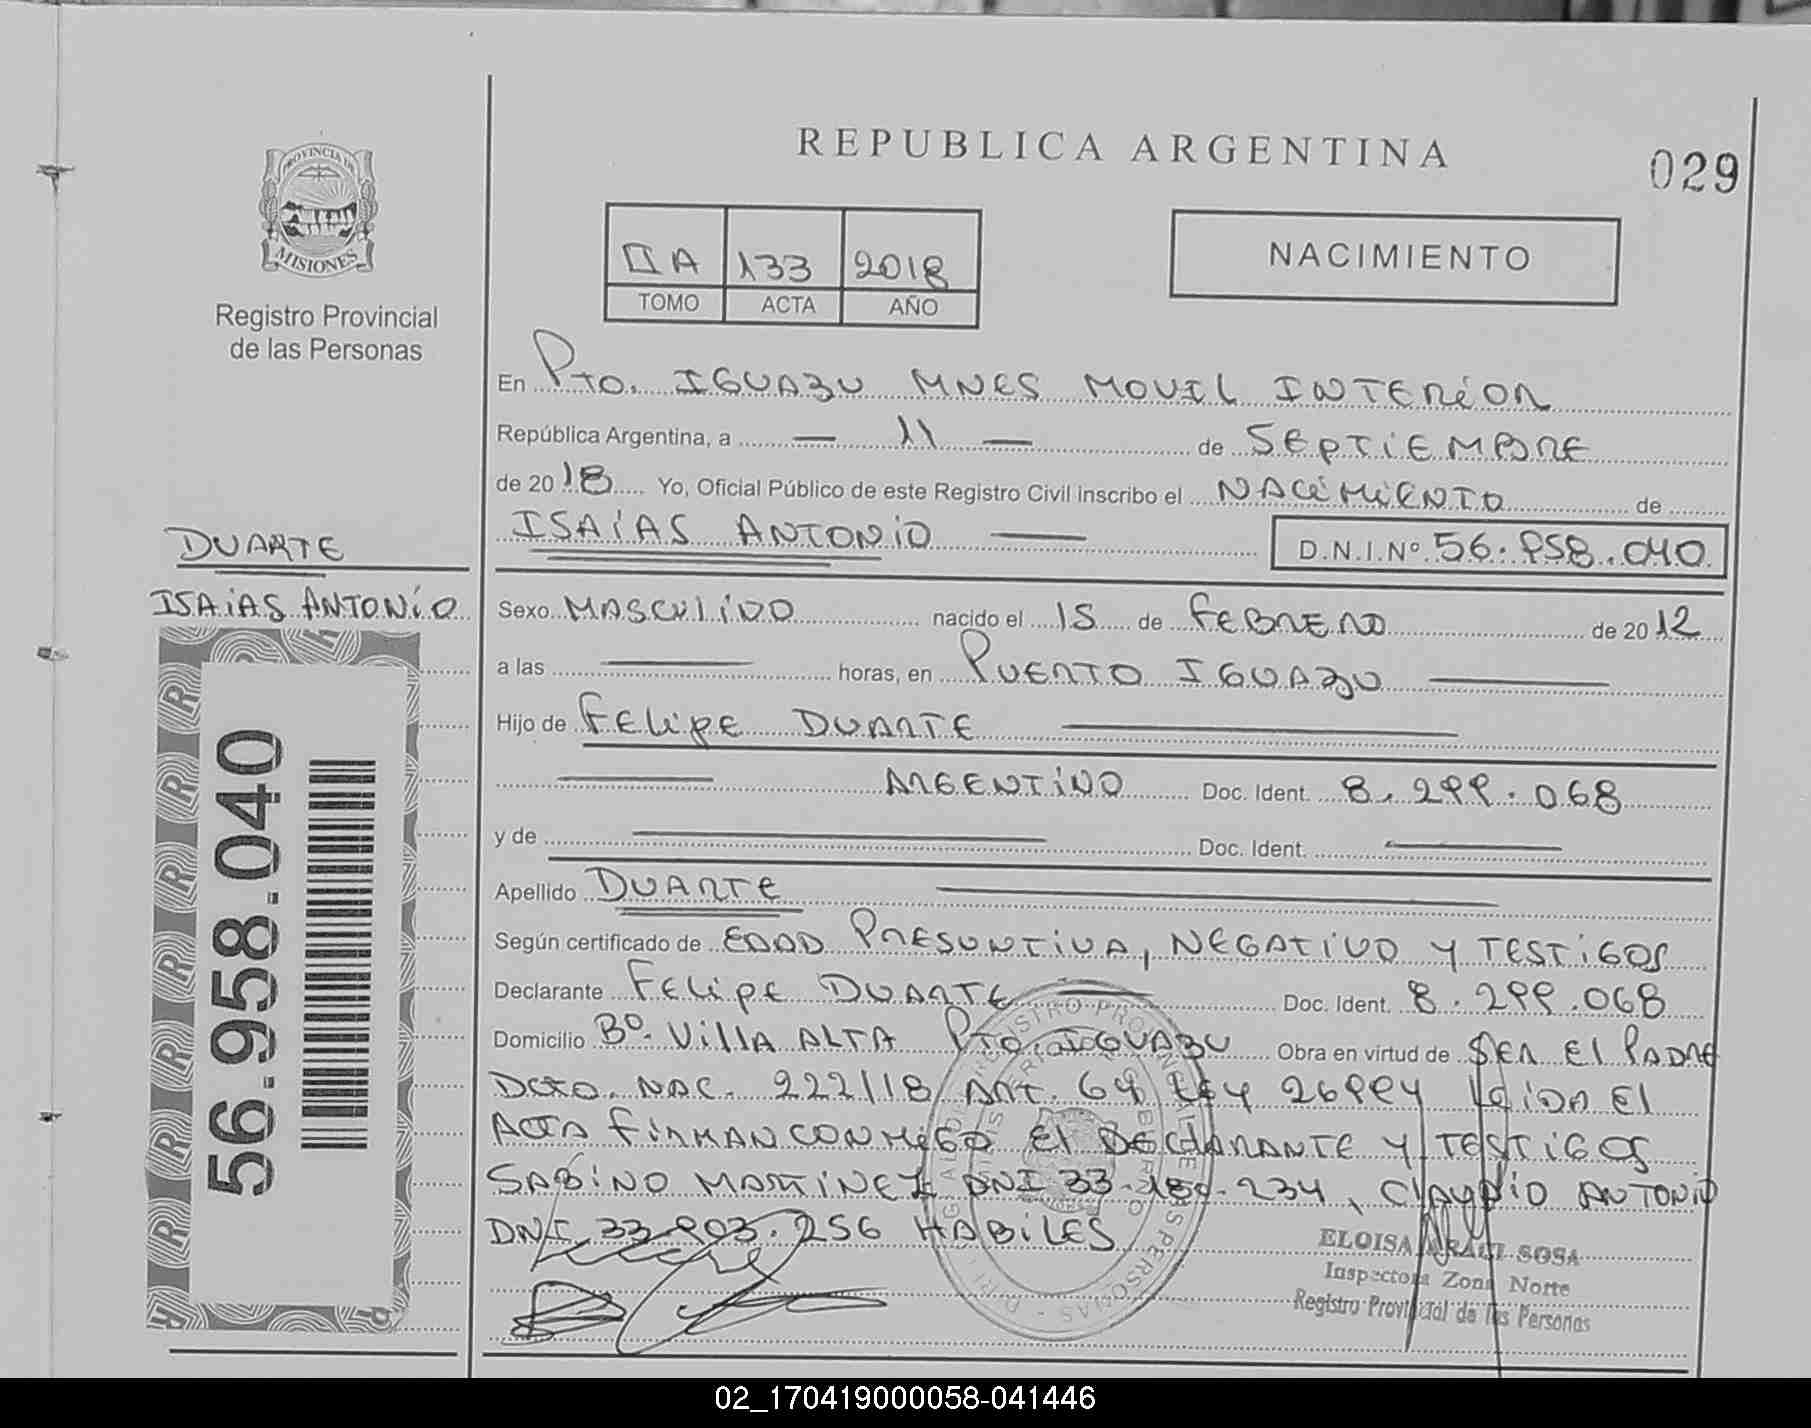 REPUBLICA ARGENTINA
029
PROVINCIA DE
MISIONES
Registro Provincial
de las Personas
II A 133 2018
TOMO ACTA AÑO
NACIMIENTO
En Pto. IGUAZU MNES MOVIL INTERIOR
República Argentina, a — 11 — de SEPTIEMBRE
de 2018 Yo, Oficial Público de este Registro Civil inscribo el NACIMIENTO de
ISAIAS ANTONIO — D.N.I.Nº 56.958.040
DUARTE
ISAIAS ANTONIO
56.958.040
Sexo MASCULINO nacido el 15 de FEBRERO de 2012
a las — horas, en PUERTO IGUAZU —
Hijo de FELIPE DUARTE —
— ARGENTINO Doc. Ident. 8.299.068
y de — Doc. Ident. —
Apellido DUARTE —
Según certificado de EDAD PRESUNTIVA, NEGATIVO Y TESTIGOS
Declarante FELIPE DUARTE — Doc. Ident. 8.299.068
Domicilio Bº VILLA ALTA PTO. IGUAZU Obra en virtud de SER EL PADRE
DCTO. NAC. 222/18 ART. 64 LEY 26994 LEIDA EL
ACTA FIRMAN CONMIGO EL DECLARANTE Y TESTIGOS
SABINO MARTINEZ DNI 33.184.234, CLAUDIO ANTONIO
DNI 33.903.256 HABILES
ELOISA ARACELI SOSA
Inspectora Zona Norte
Registro Provincial de las Personas
02_170419000058-041446